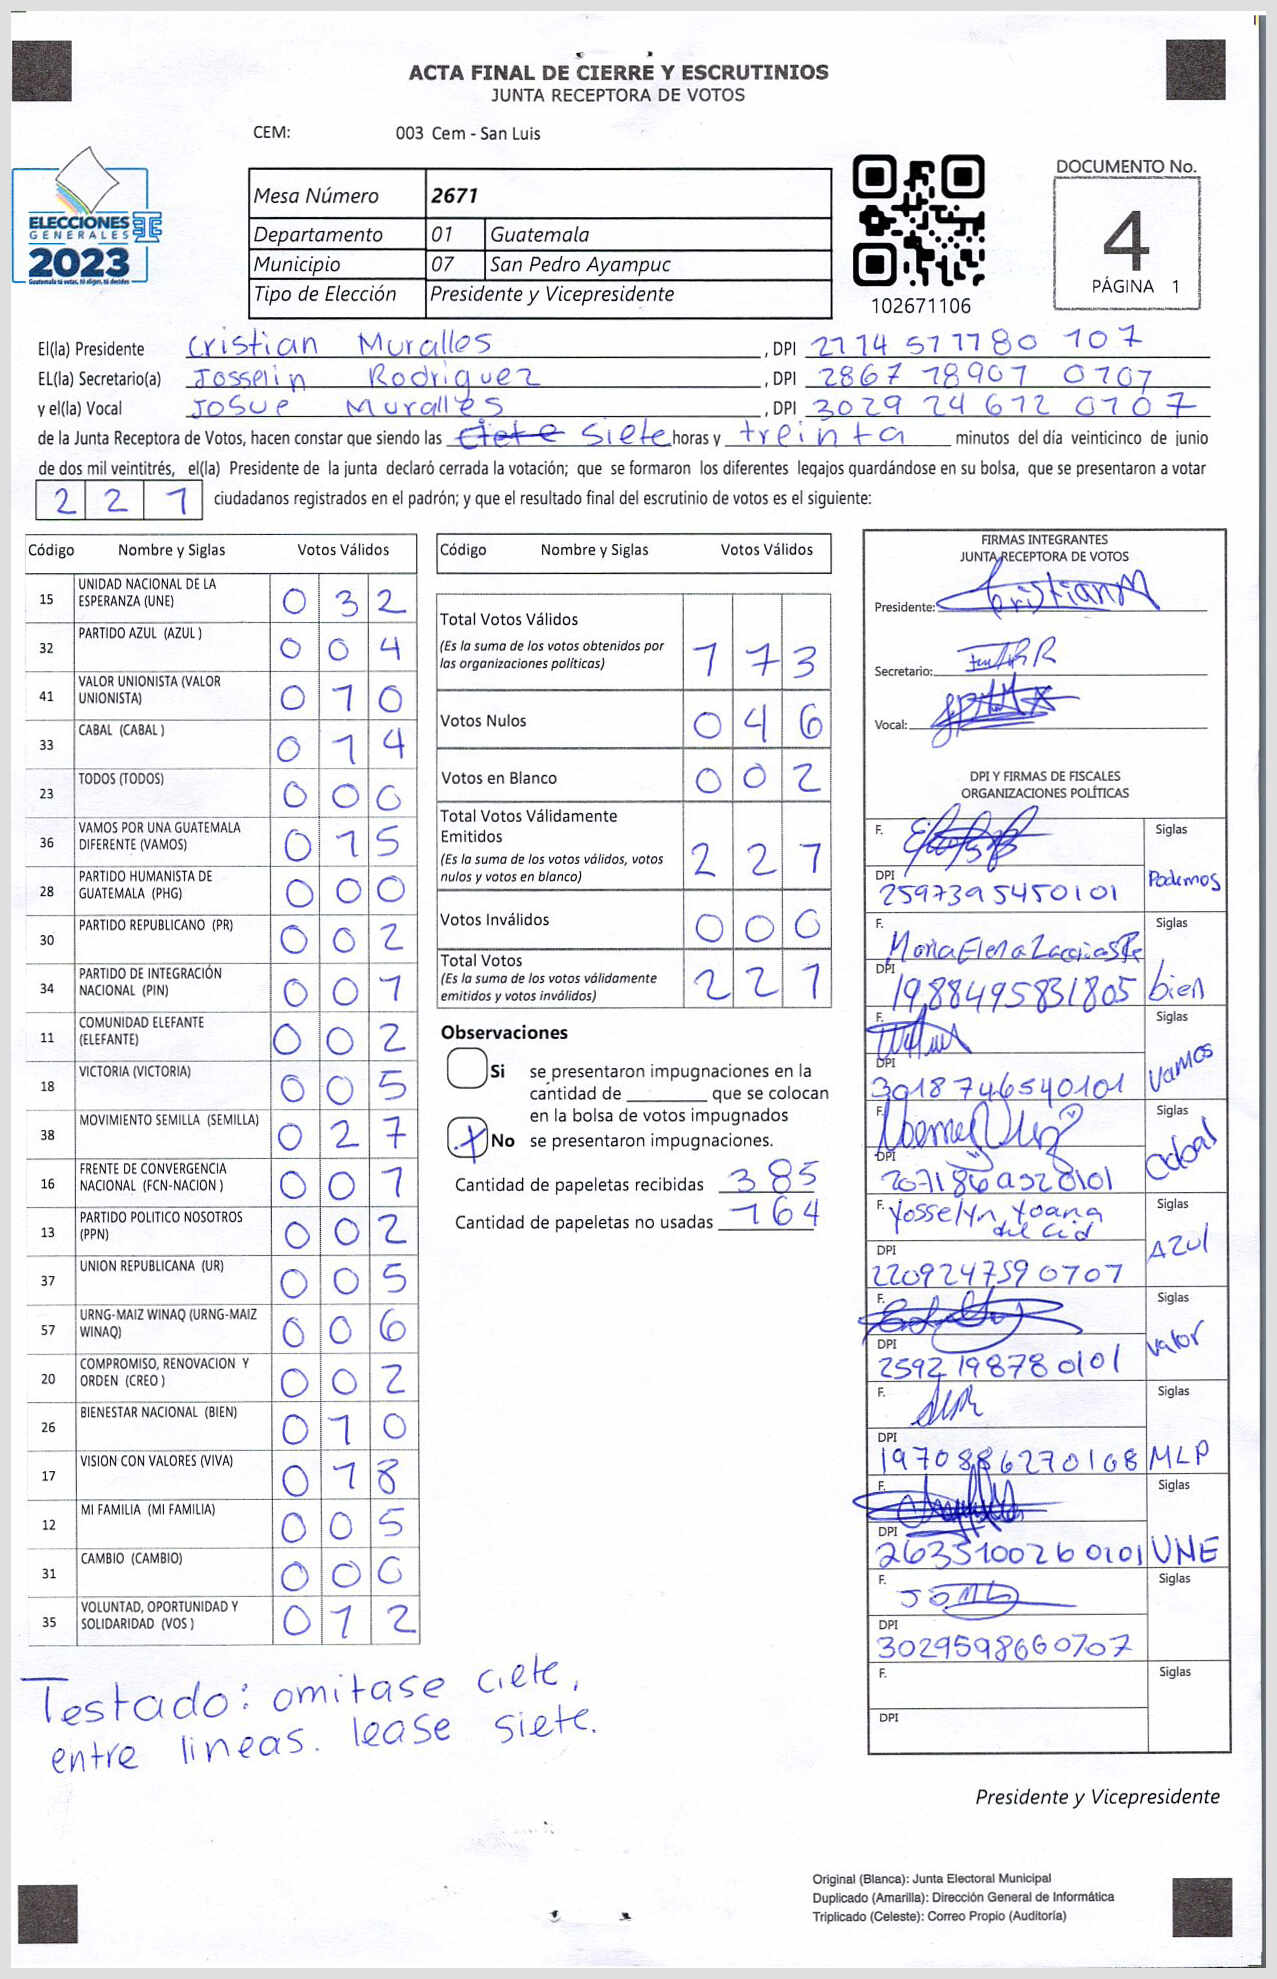 ACTA FINAL DE CIERRE Y ESCRUTINIOS
JUNTA RECEPTORA DE VOTOS
CEM: 003 Cem - San Luis
ELECCIONES
GENERALES
2023
Guatemala tú votas, tú eliges, tú decides
Mesa Número 2671
Departamento 01 Guatemala
Municipio 07 San Pedro Ayampuc
Tipo de Elección Presidente y Vicepresidente
102671106
DOCUMENTO No.
4
PÁGINA 1
El(la) Presidente Cristian Muralles, DPI 2114 571180 107
EL(la) Secretario(a) Josselin Rodriguez, DPI 2867 18901 0107
y el(la) Vocal Josue Muralles, DPI 3029 24 612 0107
de la Junta Receptora de Votos, hacen constar que siendo las ciete siete horas y treinta minutos del día veinticinco de junio
de dos mil veintitrés, el(la) Presidente de la junta declaró cerrada la votación; que se formaron los diferentes legajos guardándose en su bolsa, que se presentaron a votar
221 ciudadanos registrados en el padrón; y que el resultado final del escrutinio de votos es el siguiente:
Código Nombre y Siglas Votos Válidos
15 UNIDAD NACIONAL DE LA ESPERANZA (UNE) 032
32 PARTIDO AZUL (AZUL ) 004
41 VALOR UNIONISTA (VALOR UNIONISTA) 010
33 CABAL (CABAL ) 014
23 TODOS (TODOS) 000
36 VAMOS POR UNA GUATEMALA DIFERENTE (VAMOS) 015
28 PARTIDO HUMANISTA DE GUATEMALA (PHG) 000
30 PARTIDO REPUBLICANO (PR) 002
34 PARTIDO DE INTEGRACIÓN NACIONAL (PIN) 001
11 COMUNIDAD ELEFANTE (ELEFANTE) 002
18 VICTORIA (VICTORIA) 005
38 MOVIMIENTO SEMILLA (SEMILLA) 027
16 FRENTE DE CONVERGENCIA NACIONAL (FCN-NACION ) 001
13 PARTIDO POLITICO NOSOTROS (PPN) 002
37 UNION REPUBLICANA (UR) 005
57 URNG-MAIZ WINAQ (URNG-MAIZ WINAQ) 006
20 COMPROMISO, RENOVACION Y ORDEN (CREO ) 002
26 BIENESTAR NACIONAL (BIEN) 010
17 VISION CON VALORES (VIVA) 018
12 MI FAMILIA (MI FAMILIA) 005
31 CAMBIO (CAMBIO) 000
35 VOLUNTAD, OPORTUNIDAD Y SOLIDARIDAD (VOS ) 012
Código Nombre y Siglas Votos Válidos
Total Votos Válidos
(Es la suma de los votos obtenidos por las organizaciones políticas) 173
Votos Nulos 046
Votos en Blanco 002
Total Votos Válidamente Emitidos
(Es la suma de los votos válidos, votos nulos y votos en blanco) 221
Votos Inválidos 000
Total Votos
(Es la suma de los votos válidamente emitidos y votos inválidos) 221
Observaciones
Si se presentaron impugnaciones en la
cantidad de ________ que se colocan
en la bolsa de votos impugnados
X No se presentaron impugnaciones.
Cantidad de papeletas recibidas 385
Cantidad de papeletas no usadas 164
FIRMAS INTEGRANTES
JUNTA RECEPTORA DE VOTOS
Presidente: CristianM
Secretario:
Vocal:
DPI Y FIRMAS DE FISCALES
ORGANIZACIONES POLÍTICAS
F. Siglas
DPI 2597395450101 Podemos
F. Maria Elena Siglas
DPI 1988495831805 bien
F. Siglas
DPI 3018746540101 Vamos
F. Siglas
DPI
F. Yosselyn Yoana del Cid Siglas
DPI 2209247590707 Azul
F. Siglas
DPI 2592198780101 Valor
F. Siglas
DPI 1970886270108 MLP
F. Siglas
DPI 2635100260101 UNE
F. Siglas
DPI 3029598660707
F. Siglas
DPI
Testado: omitase ciete,
entre lineas. lease siete.
Presidente y Vicepresidente
Original (Blanca): Junta Electoral Municipal
Duplicado (Amarilla): Dirección General de Informática
Triplicado (Celeste): Correo Propio (Auditoría)